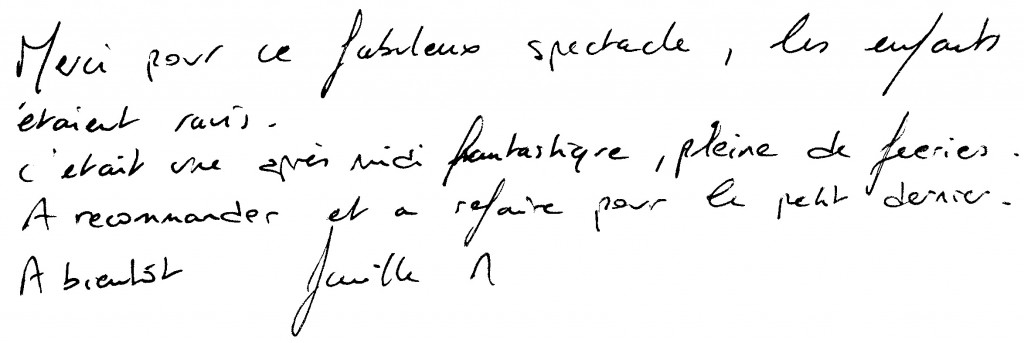 Merci pour ce fabuleux spectacle, les enfants
étaient ravis.
c'était une après midi fantastique, pleine de feeries.
A recommander et a refaire pour le petit dernier.
A bientôt famille